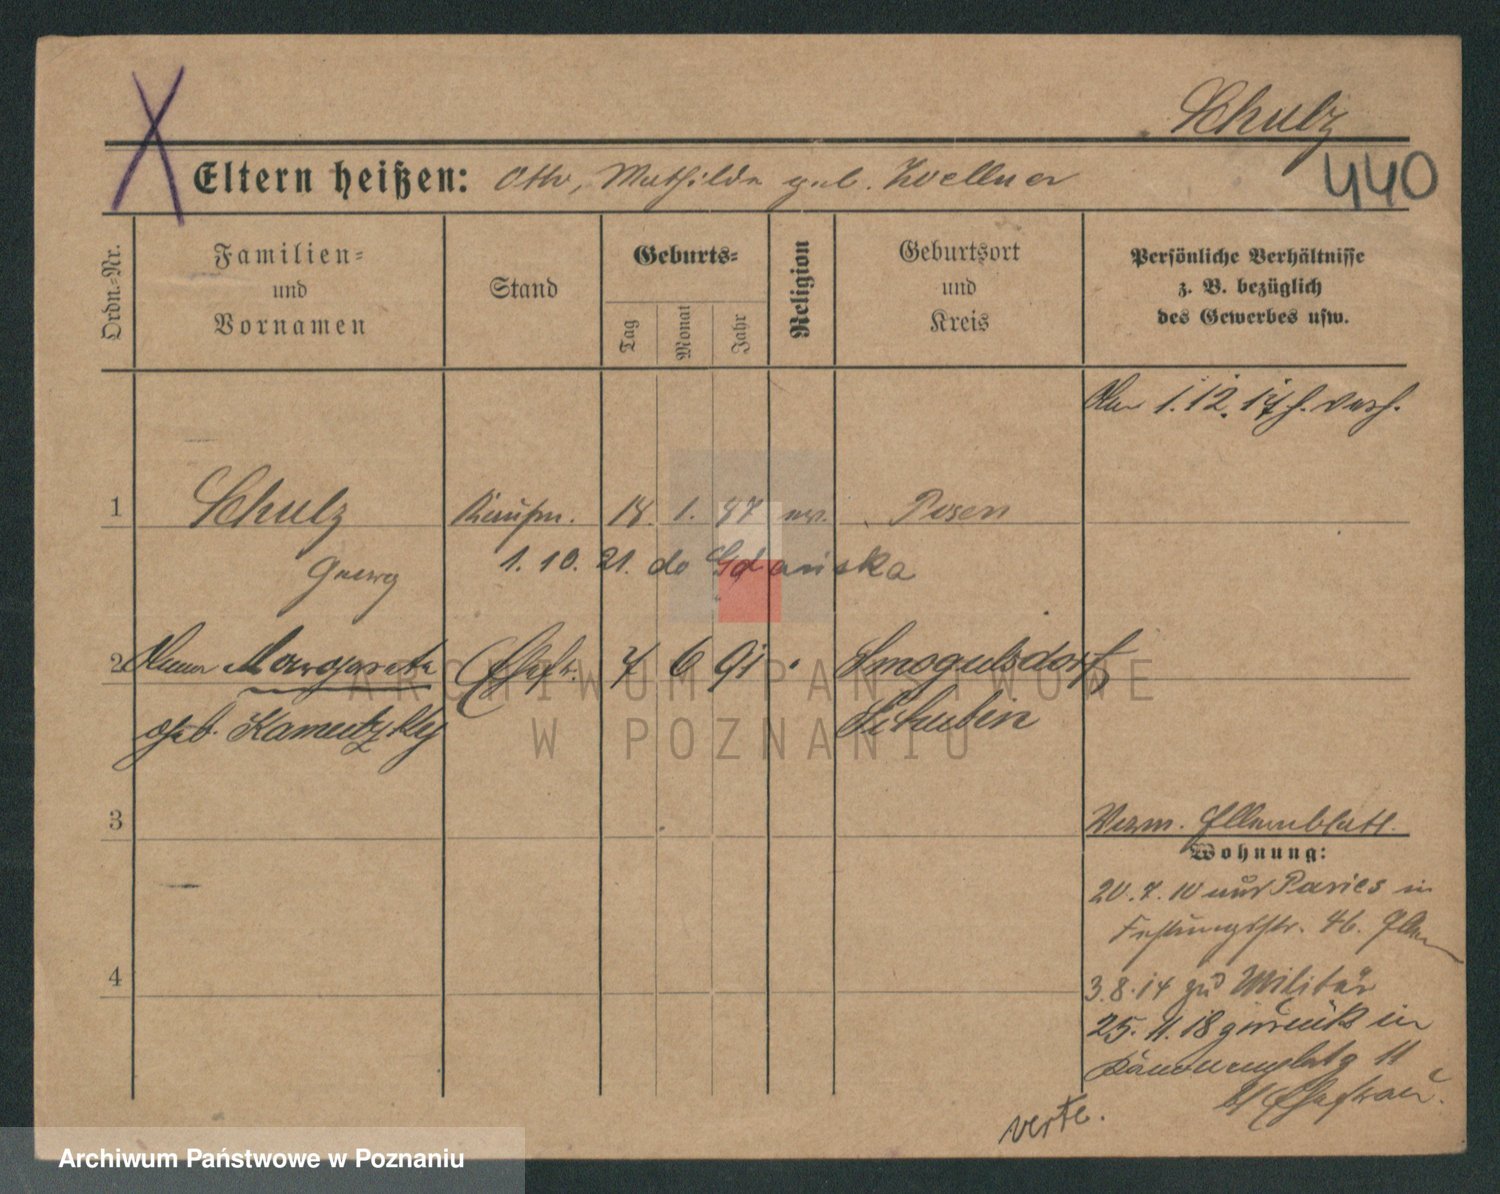 Schulz
440
Eltern heißen: Otto, Mathilde geb. Zoellner
Ordn.-Nr.
Familien-
und
Vornamen
Stand
Geburts-
Tag
Monat
Jahr
Religion
Geburtsort
und
Kreis
Persönliche Verhältnisse
z. B. bezüglich
des Gewerbes usw.
1. 12. 17.
1 Schulz Kaufm. 18. 1. 87 ev. Posen
Georg
1. 10. 21. do Gdańska
2 Margarete Ehefr. 7 6 91 Smogulsdorf
geb. Kamutzky Schubin
3
Verm. Elternblatt.
Wohnung:
20. 7. 10 aus Paries in
Festungsstr. 4b. Eltern
4
3. 8. 14 zum Militär
25. 11. 18 zurück in
11
b/ Ehefrau.
verte.
ARCHIWUM PAŃSTWOWE
W POZNANIU
Archiwum Państwowe w Poznaniu